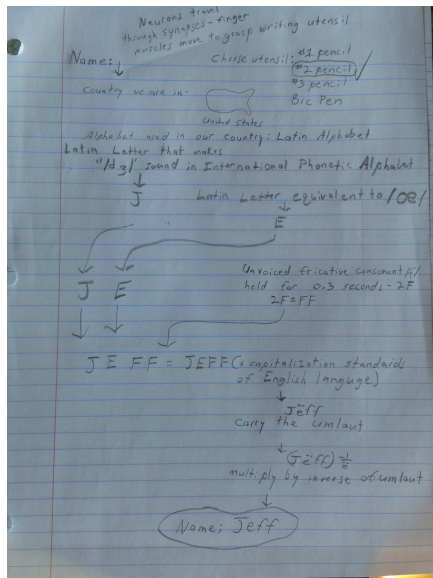 Neurons travel
through synapses - finger
muscles move to grasp writing utensil
Name:
Choose utensil: #1 pencil
#2 pencil
#3 pencil
Bic Pen
Country we are in -
United states
Alphabet used in our country: Latin Alphabet
Latin Letter that makes
"/dʒ/" sound in International Phonetic Alphabet
J
Latin Letter equivalent to /oe/
E
J E
Unvoiced fricative consonant /f/
held for 0.3 seconds - 2F
2F = FF
J E FF = JEFF (÷ capitalization standards
of English language)
Jëff
Carry the umlaut
(Jëff) 1/ë
multiply by inverse of umlaut
Name: Jeff